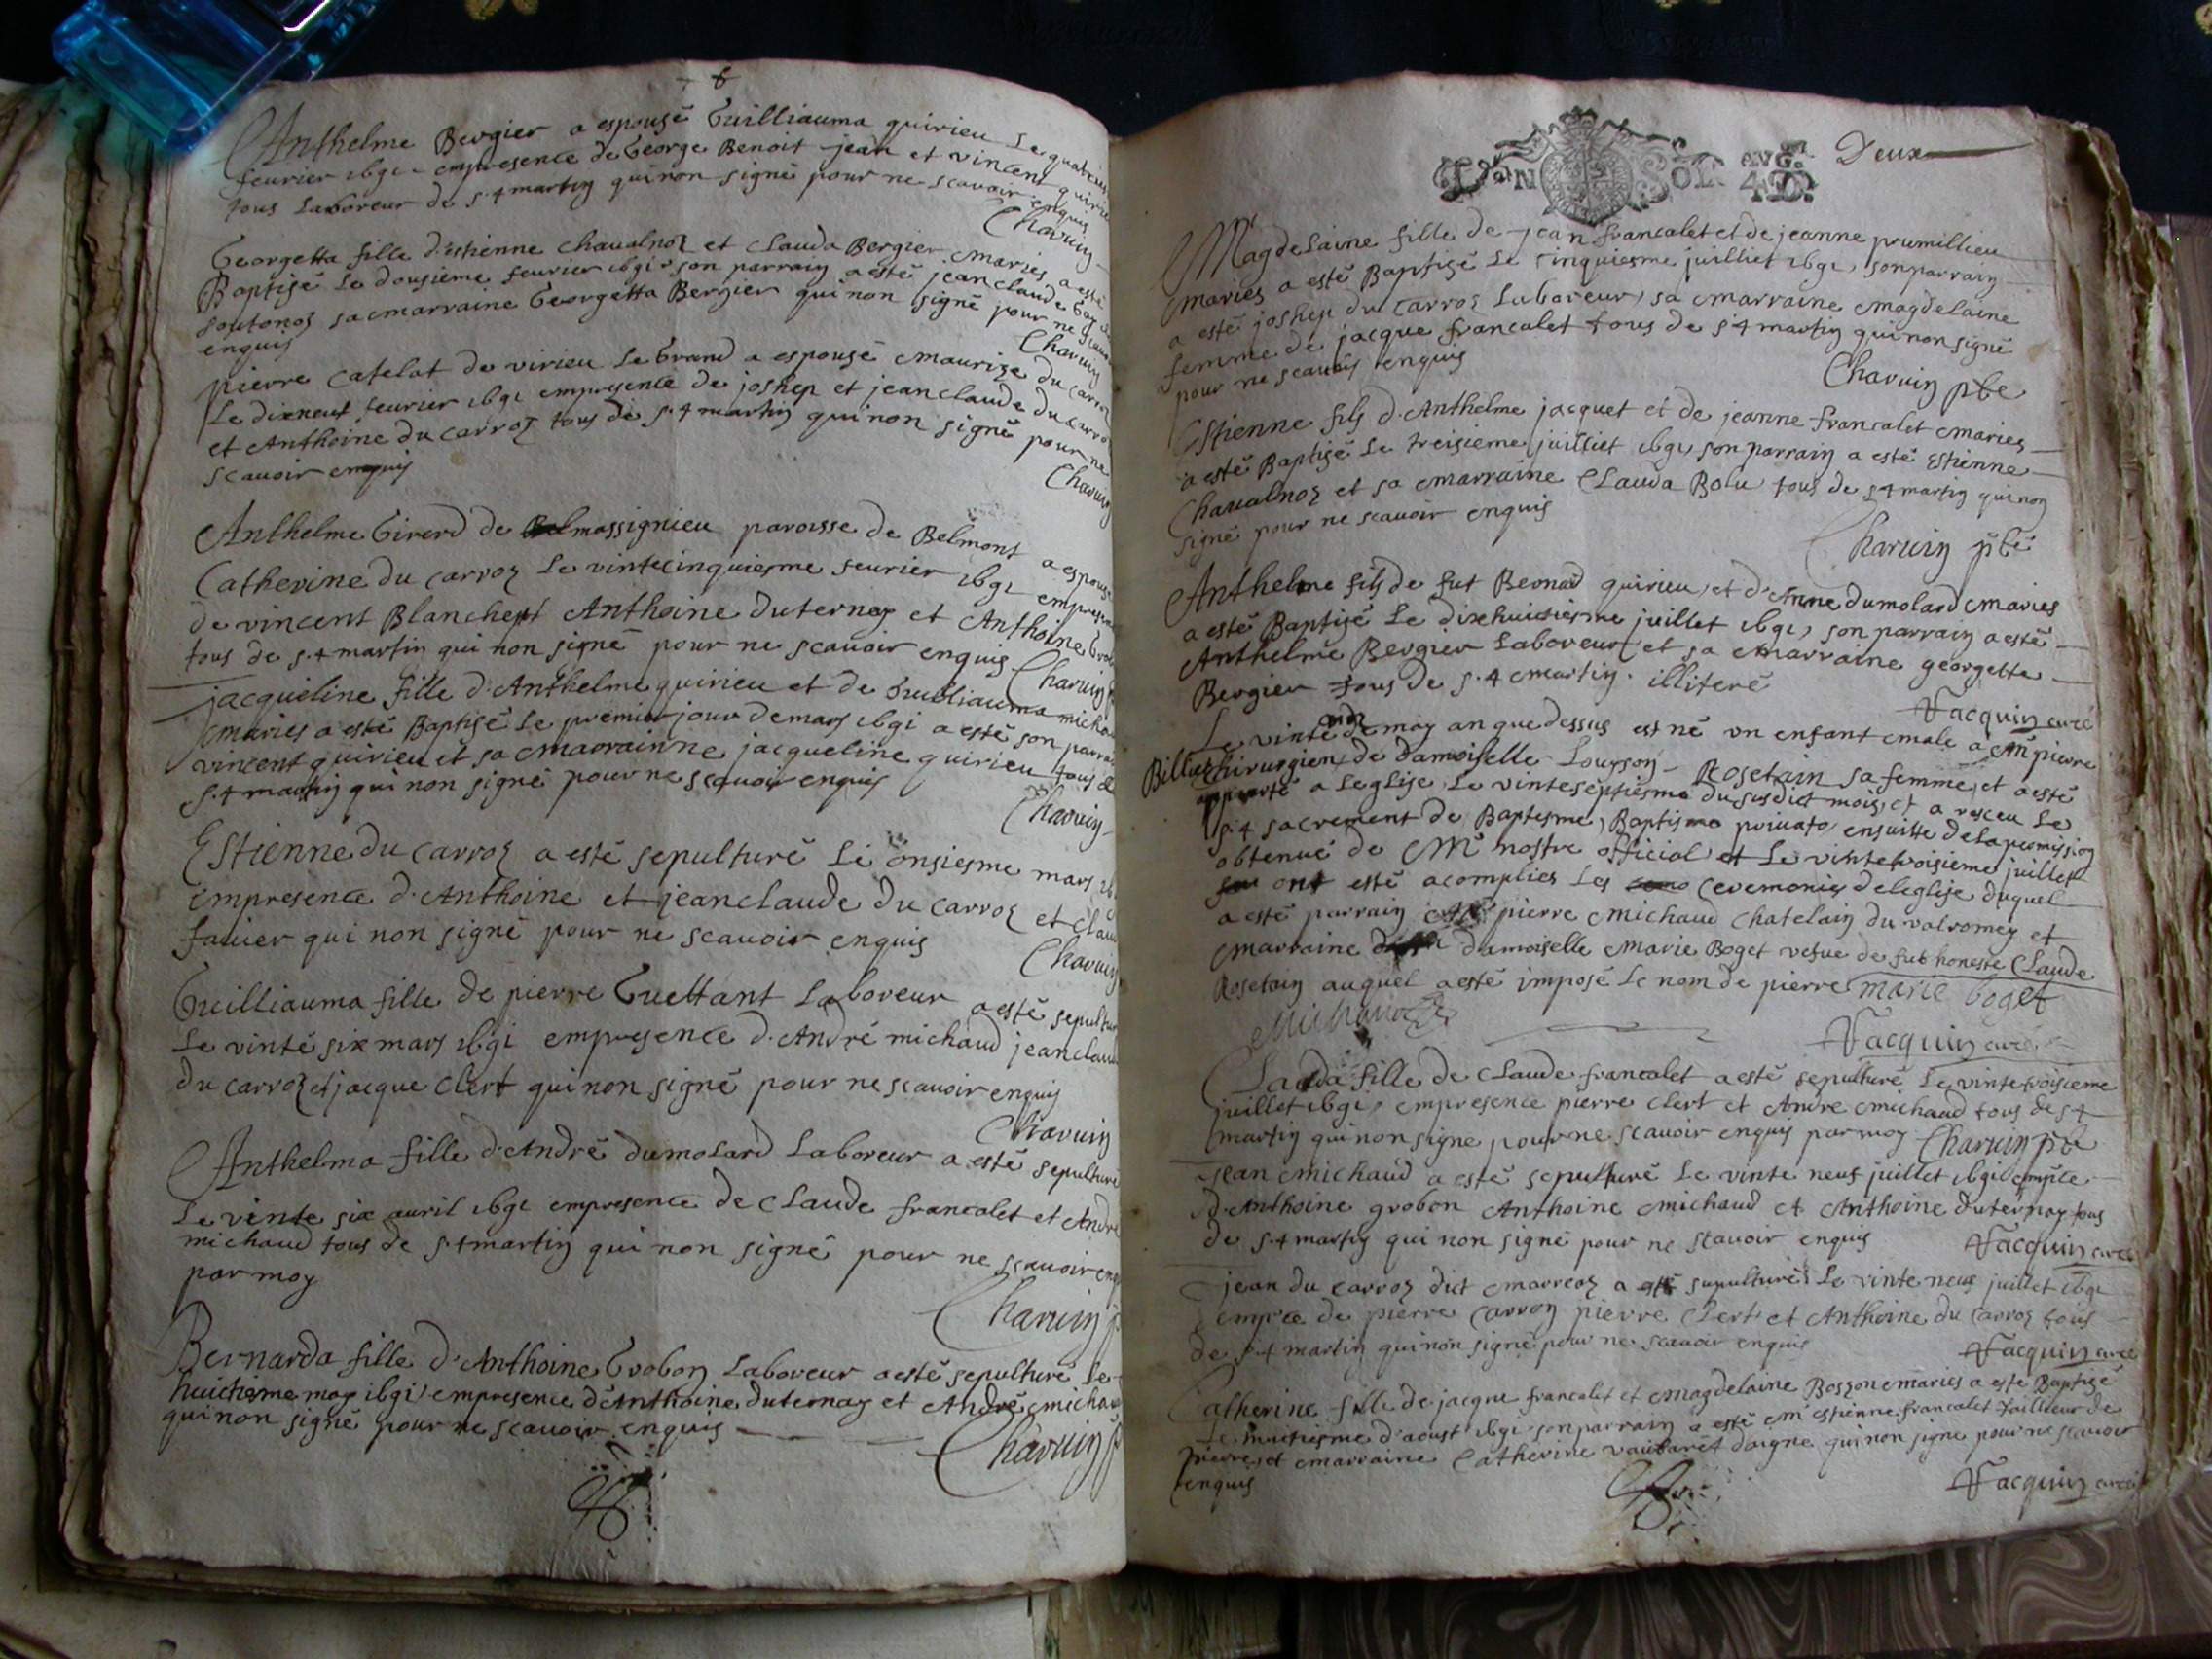 Anthelme Bergier a espousé Guilliauma quirieu Le
feurier 1691 empresence de George Benoit jean et vincent
tous Laboreur de s.t martin qui non signé pour ne scavoir enquis
Charuin
Georgetta fille d'estienne chaualnoz et Clauda Bergier maries a esté
Baptisé Le dousieme feurier 1691 son parrain a esté jean claude
sa marraine Georgetta Bergier qui non signé pour ne
enquis
Charuin
pierre Catelat de virieu Le Grand a espousé Maurize du Carroz
Le dixneuf feurier 1691 empresence de joshep et jean claude du carroz
et Anthoine du Carroz tous de s.t martin qui non signé pour ne
scauoir enquis
Charuin
Anthelme Girerd de massignieu paroisse de Belmont a espousé
Catherine du Carroz Le vintecinquiesme feurier 1691
de vincent Blanchept Anthoine duternay et Anthoine
tous de s.t martin qui non signé pour ne scauoir enquis
Charuin
jacqueline fille d'Anthelme quirieu et de Guilliauma
maries a esté Baptisé Le premier jour de mars 1691 a esté son
vincent quirieu et sa Maorainne jacqueline quirieu tous de
s.t martin qui non signé pour ne scauoir enquis
Charuin
Estienne du Carroz a esté sepulturé Le onsiesme mars
empresence d'Anthoine et jeanclaude du Carroz et
qui non signé pour ne scauoir enquis
Charuin
Guilliauma fille de pierre Guettant Laboreur a esté
Le vinte six mars 1691 empresence d'André michaud jeanclaude
du carroz et jacque Clert qui non signé pour ne scauoir enquis
Charuin
Anthelma fille d'André dumolard Laboreur a esté sepulturé
Le vinte six auril 1691 empresence de Claude francalet et André
michaud tous de s.t martin qui non signé pour ne scauoir
par moy
Charuin
Bernarda fille d'Anthoine Grobon Laboreur a esté sepulturé Le
huictiesme may 1691 empresence d'Anthoine duternay et André
qui non signé pour ne scauoir enquis
Charuin
Deux
Magdelaine fille de jean francalet et de jeanne prumillieu
maries a esté Baptisé Le cinquiesme juilliet 1691, son parrain
a esté joshep du Carroz Laboreur, sa marraine Magdelaine
femme de jacque francalet tous de s.t martin qui non signé
pour ne scauoir enquis
Charuin pbe
Estienne fils d'Anthelme jacquet et de jeanne francalet maries
a esté Baptisé Le treisieme juilliet 1691, son parrain a esté Estienne
Chaualnoz et sa marraine Clauda Bolu tous de s.t martin qui non
signé pour ne scauoir enquis
Charuin pbe
Anthelme fils de fut Bernard quirieu, et d'Anne dumolard maries
a esté Baptisé Le dixhuictiesme juillet 1691, son parrain a esté
Anthelme Bergier Laboreur et sa marraine georgette
Bergier tous de s.t martin. illiteré
Jacquin curé
Le vinte may an que dessus est né un enfant male a M.e pierre
Billiez chirurgien, de damoiselle Rosetain sa femme, et a esté
apporté a Leglise, Le vinteseptiesme du susdict mois, et a resceu Le
s.t sacrement de Baptesme, Baptismo priuato, ensuitte de la permission
obtenue de M.r nostre official et Le vintetroisieme juillet
ont esté acomplies Les ceremonies de leglise duquel
a esté parrain pierre Michaud Chatelain du valromey et
marraine damoiselle Marie Boget vefue de fut honeste Claude
Rosetain auquel a esté imposé Le nom de pierre marie boget
Michaud
Jacquin curé
Clauda fille de Claude francalet a esté sepulturé Le vintetroisieme
juillet 1691, empresence pierre Clert et André michaud tous de s.t
martin qui non signe pour ne scauoir enquis par moy Charuin pbe
Jean Michaud a esté sepulturé Le vinte neuf juillet 1691
d'Anthoine grobon Anthoine Michaud et Anthoine duternay tous
de s.t martin qui non signé pour ne scauoir enquis
Jacquin curé
jean du Carroz dict a esté sepulturé Le vinte neuf juillet 1691
de pierre Carron pierre Clert et Anthoine du Carroz tous
de s.t martin qui non signé pour ne scauoir enquis
Jacquin curé
Catherine fille de jacque francalet et Magdelaine maries a esté Baptisé
Le huictiesme d'aoust 1691 son parrain a esté M.e estienne francalet tailleur de
pierre, et marraine Catherine qui non signe pour ne scauoir
enquis
Jacquin curé